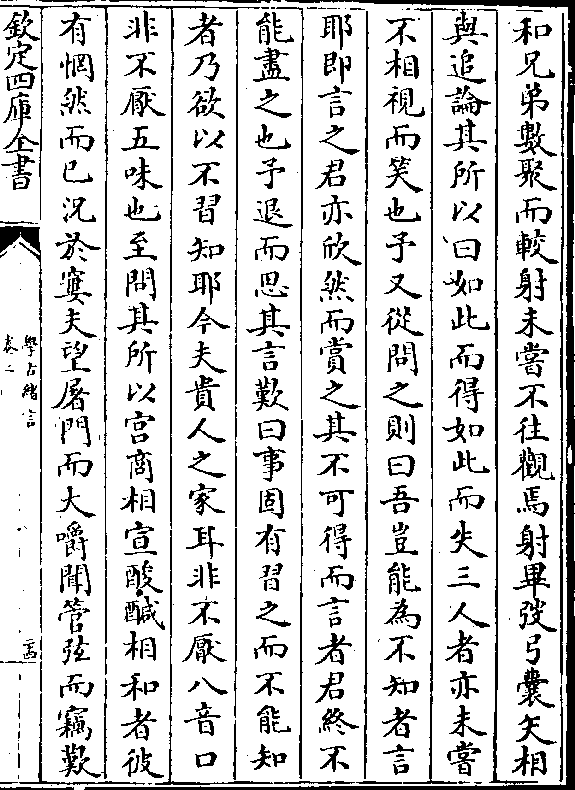 和兄弟數聚而較射未嘗不往觀焉射畢弢弓囊矢相
與追論其所以曰如此而得如此而失三人者亦未嘗
不相視而笑也予又從問之則曰吾豈能為不知者言
耶即言之君亦欣然而賞之其不可得而言者君終不
能盡之也予退而思其言歎曰事固有習之而不能知
者乃欲以不習知耶今夫貴人之家耳非不厭八音口
非不厭五味也至問其所以宫商相宣酸醎相和者彼
有惘然而已況於窶夫望屠門而大嚼聞管弦而竊歎
欽定四庫全書
學古緒言
卷二